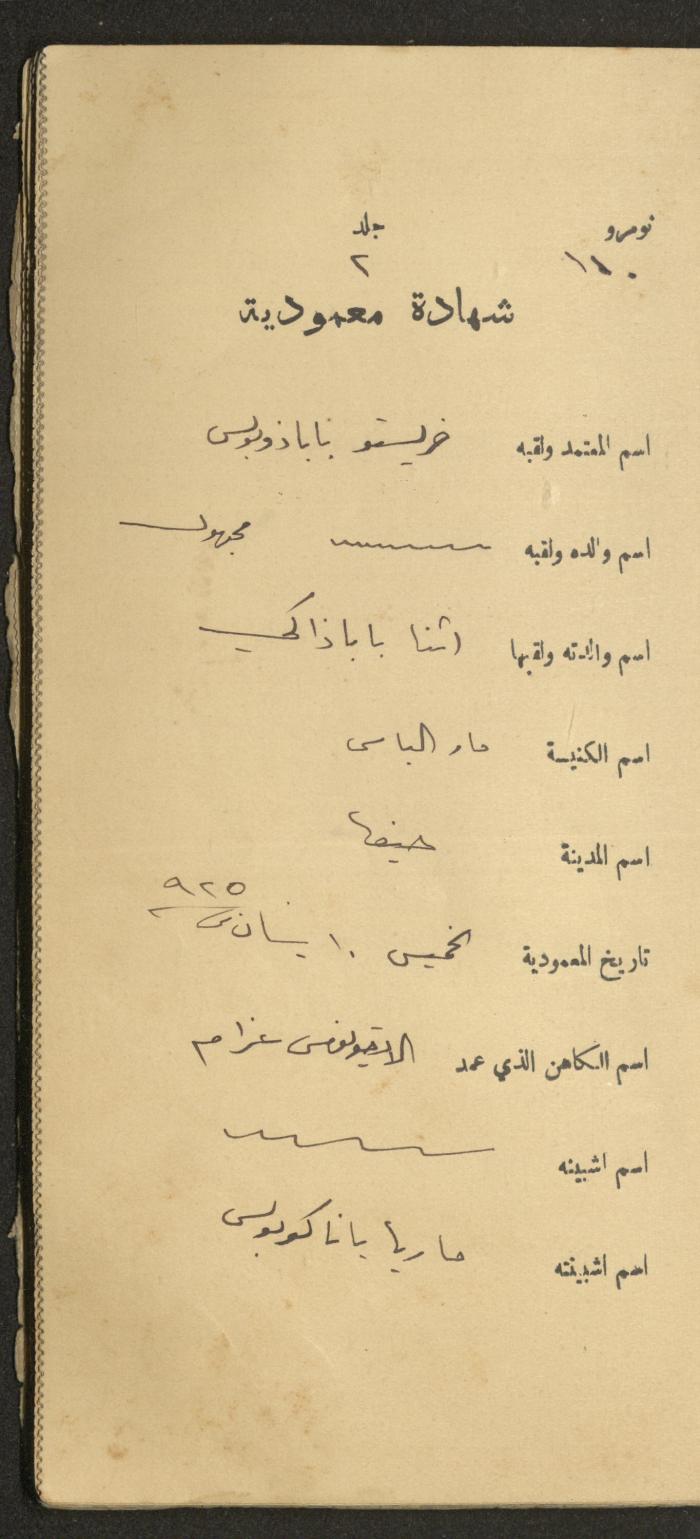 نومرو جلد
١١٠ ٢
شهادة معمودية
اسم المعتمد ولقبه خريستو باباذوبولس
اسم والده ولقبه مجهول
اسم والدته ولقبها اثنا باباذاكي
اسم الكنيسة مار الياس
اسم المدينة حيفا
٩٢٥
تاريخ المعمودية الخميس ١٠ نيسان
اسم الكاهن الذي عمد عزام
اسم اشبينه
اسم اشبينته ماريا باناكوبولس